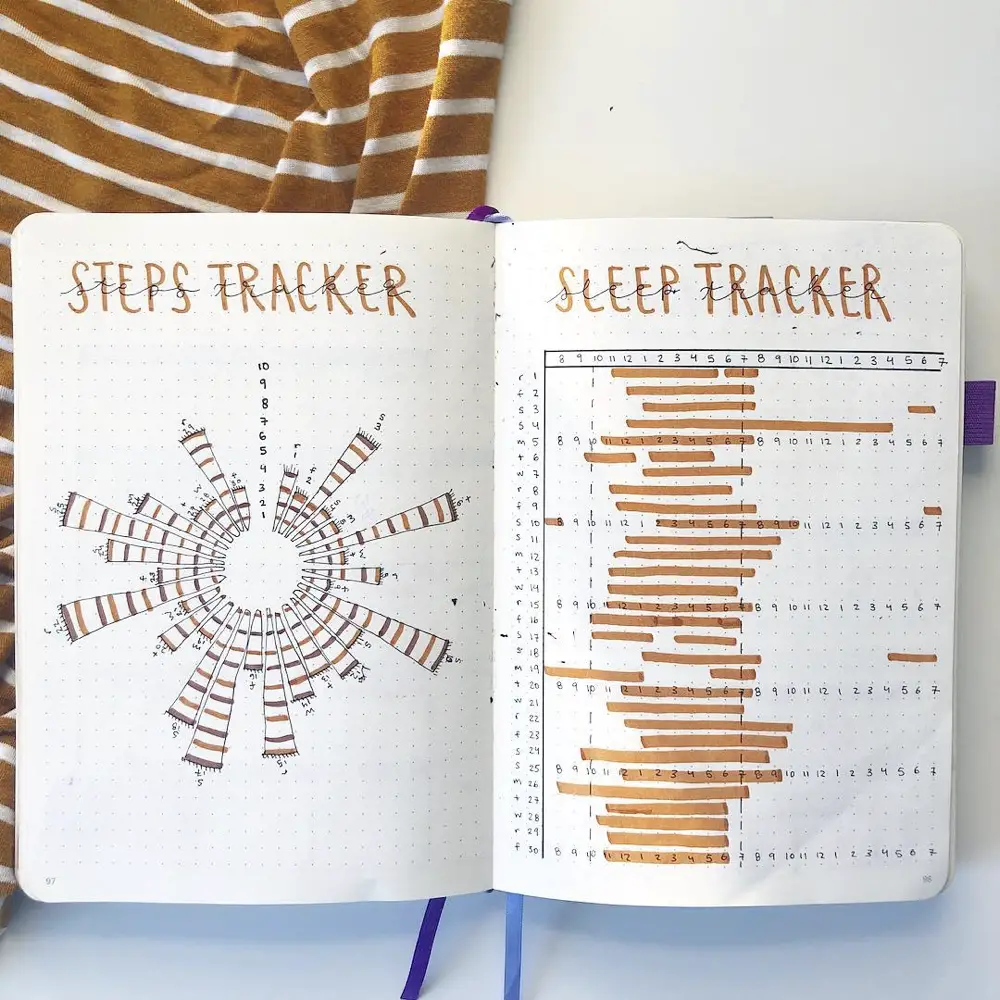 STEPS TRACKER
steps tracker
10
9
8
7
6
5
4
3
2
1
97
SLEEP TRACKER
sleep tracker
8 9 10 11 12 1 2 3 4 5 6 7 8 9 10 11 12 1 2 3 4 5 6 7
r 1
f 2
s 3
s 4
m 5 8 9 10 11 12 1 2 3 4 5 6 7 8 9 10 11 12 1 2 3 4 5 6 7
t 6
w 7
r 8
f 9
s 10 8 9 10 11 12 1 2 3 4 5 6 7 8 9 10 11 12 1 2 3 4 5 6 7
s 11
m 12
t 13
w 14
r 15 8 9 10 11 12 1 2 3 4 5 6 7 8 9 10 11 12 1 2 3 4 5 6 7
f 16
s 17
s 18
m 19
t 20 8 9 10 11 12 1 2 3 4 5 6 7 8 9 10 11 12 1 2 3 4 5 6 7
w 21
r 22
f 23
s 24
s 25 8 9 10 11 12 1 2 3 4 5 6 7 8 9 10 11 12 1 2 3 4 5 6 7
m 26
t 27
w 28
r 29
f 30 8 9 10 11 12 1 2 3 4 5 6 7 8 9 10 11 12 1 2 3 4 5 6 7
98